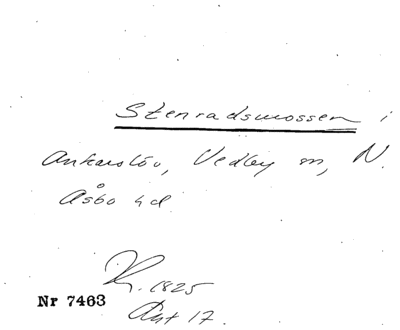 Stenradsmossen i
Ankarslöv, Vedby sn, N.
Åsbo hd
K. 1825
Nr 7463
Akt 17.